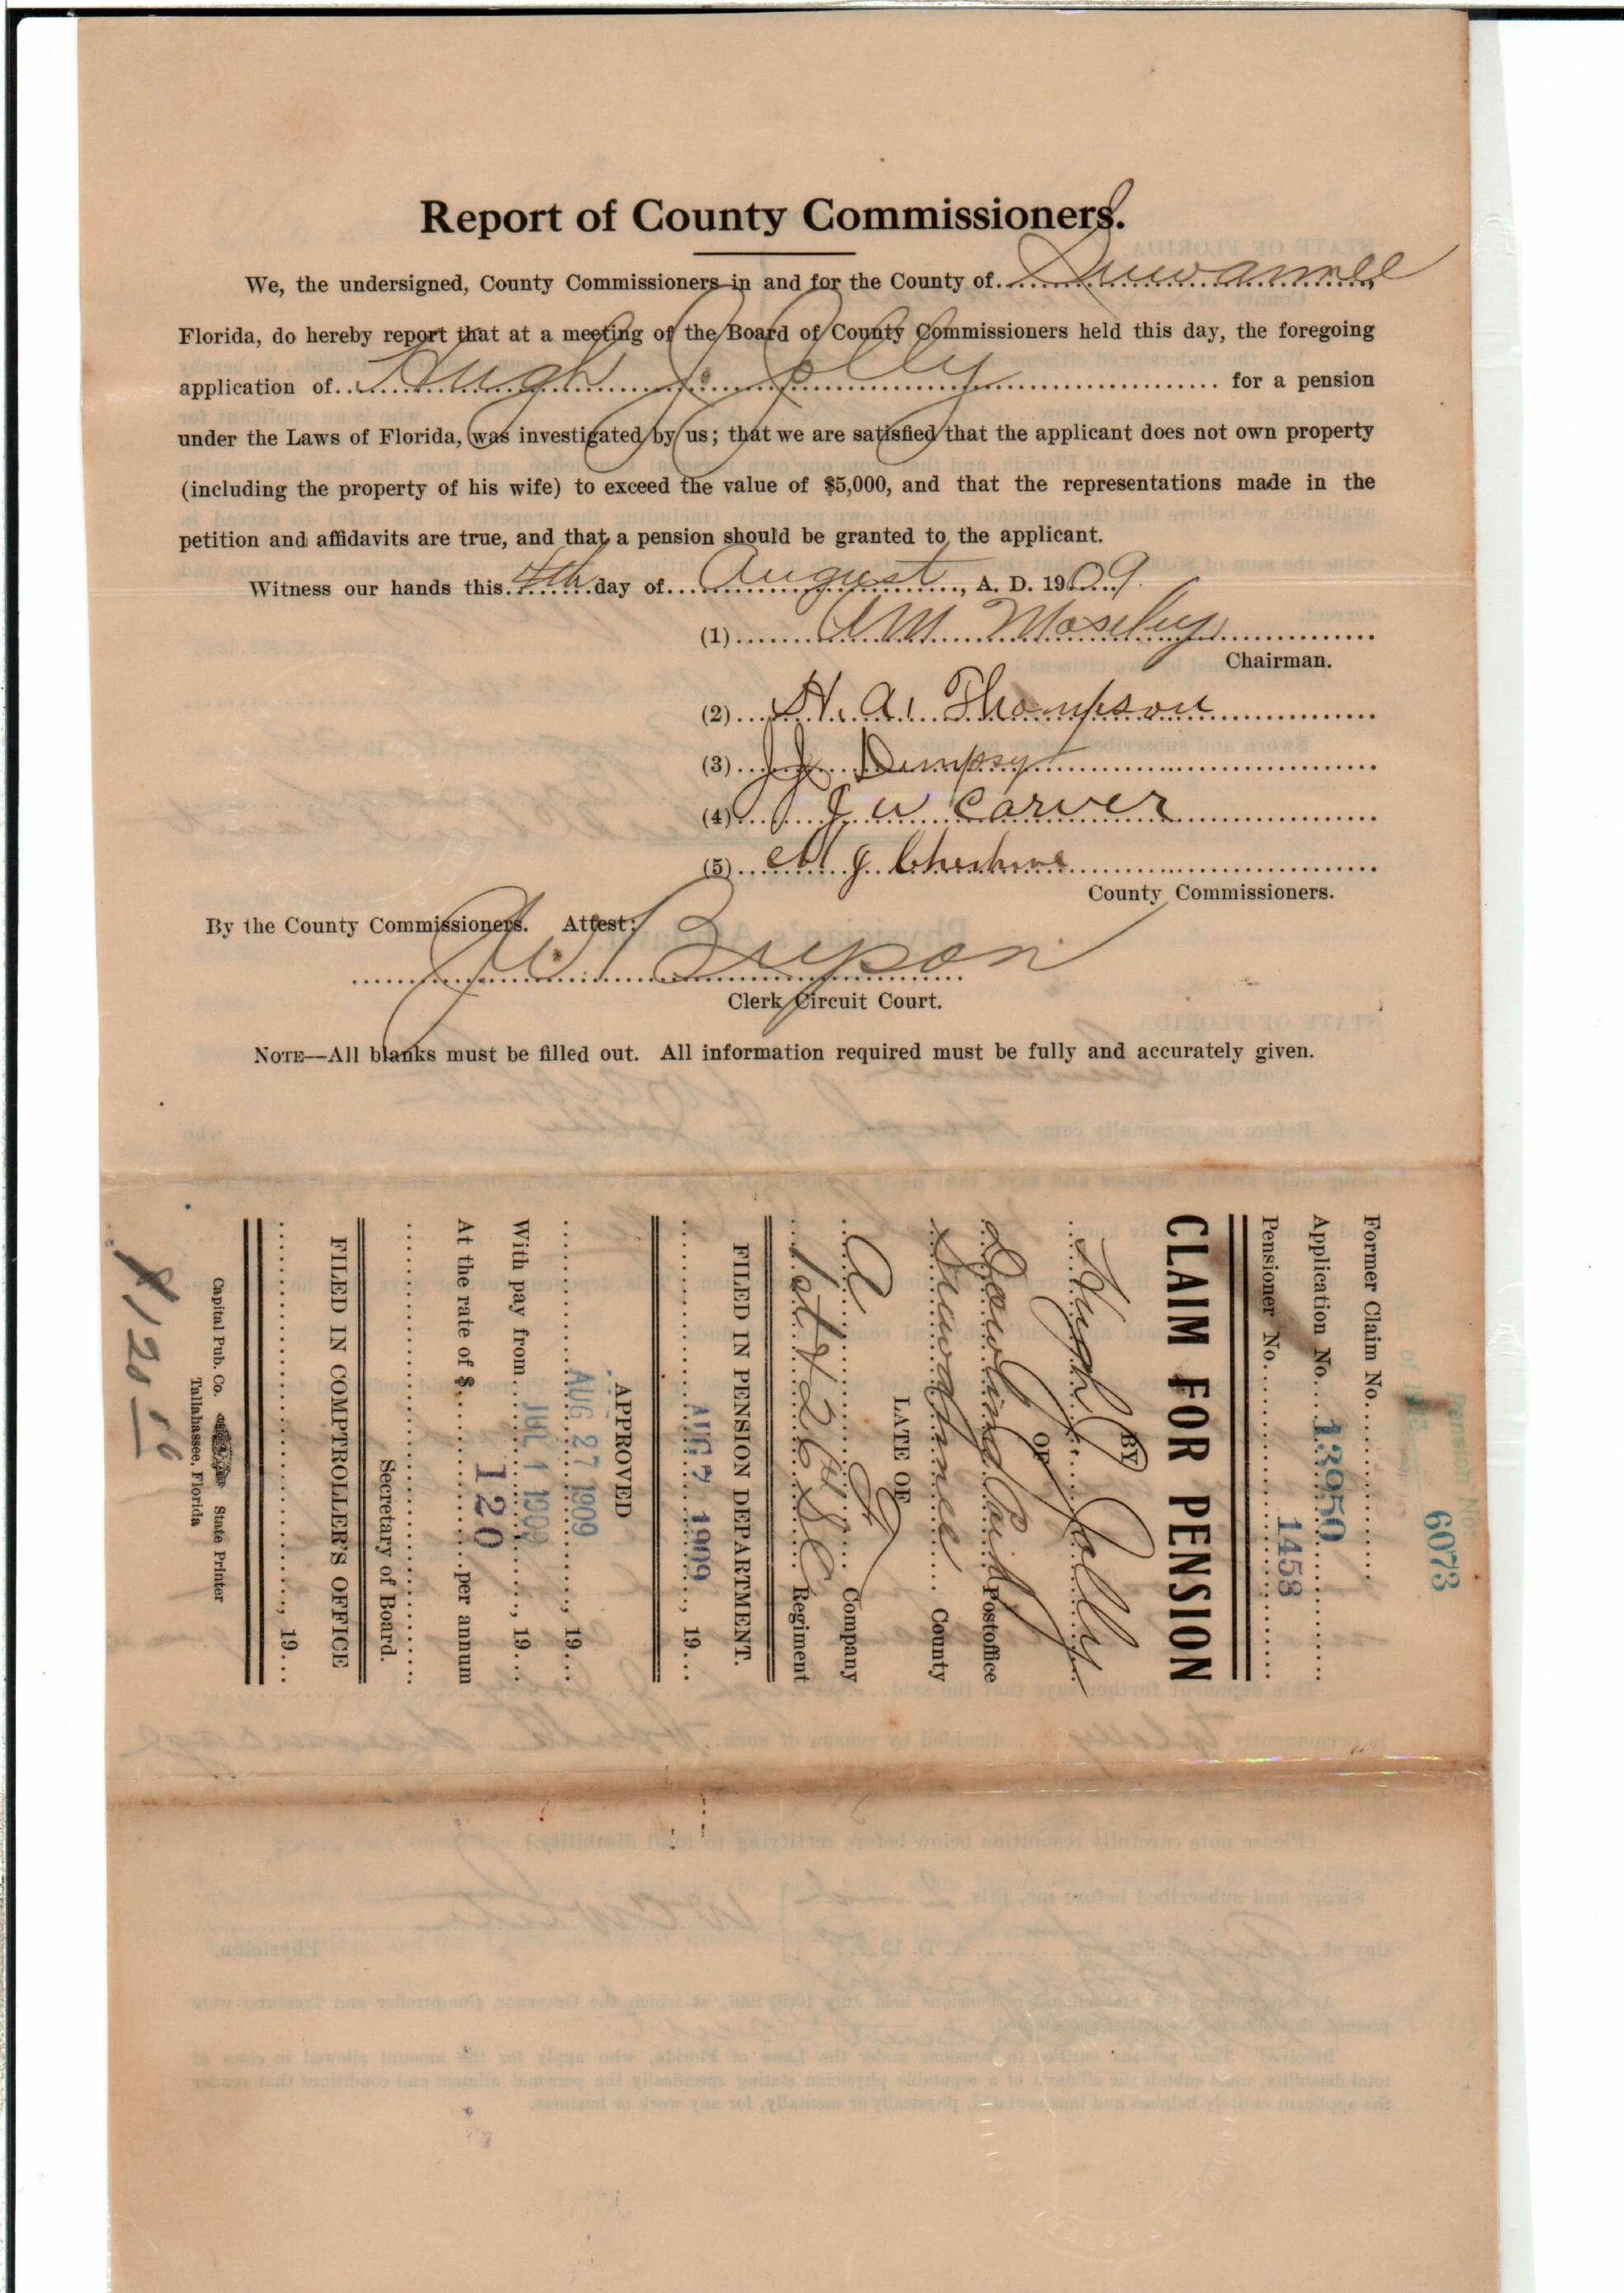 Report of County Commissioners.
We, the undersigned, County Commissioners in and for the County of Suwannee
Florida, do hereby report that at a meeting of the Board of County Commissioners held this day, the foregoing
application of Hugh J. Jolly for a pension
under the Laws of Florida, was investigated by us; that we are satisfied that the applicant does not own property
(including the property of his wife) to exceed the value of $5,000, and that the representations made in the
petition and affidavits are true, and that a pension should be granted to the applicant.
Witness our hands this 4th day of August, A. D. 1909.
(1) M Moseley
Chairman.
(2) H. A. Thompson
(3) JJ Dempsy
(4) J W Carver
(5) J. Cheshire
County Commissioners.
By the County Commissioners. Attest:
Bryson
Clerk Circuit Court.
NOTE—All blanks must be filled out. All information required must be fully and accurately given.
Pension No.
6073
Former Claim No.
Application No. 13950
Pensioner No. 1458
CLAIM FOR PENSION
BY
Hugh J. Jolly
OF
Dowling Park Postoffice
Suwannee County
LATE OF
Company
Regiment
FILED IN PENSION DEPARTMENT.
AUG 7 1909, 19
APPROVED
AUG 27 1909, 19
With pay from JUL 1 1909, 19
At the rate of $ 120 per annum
Secretary of Board.
FILED IN COMPTROLLER'S OFFICE
, 19
Capital Pub. Co. State Printer
Tallahassee, Florida
$120